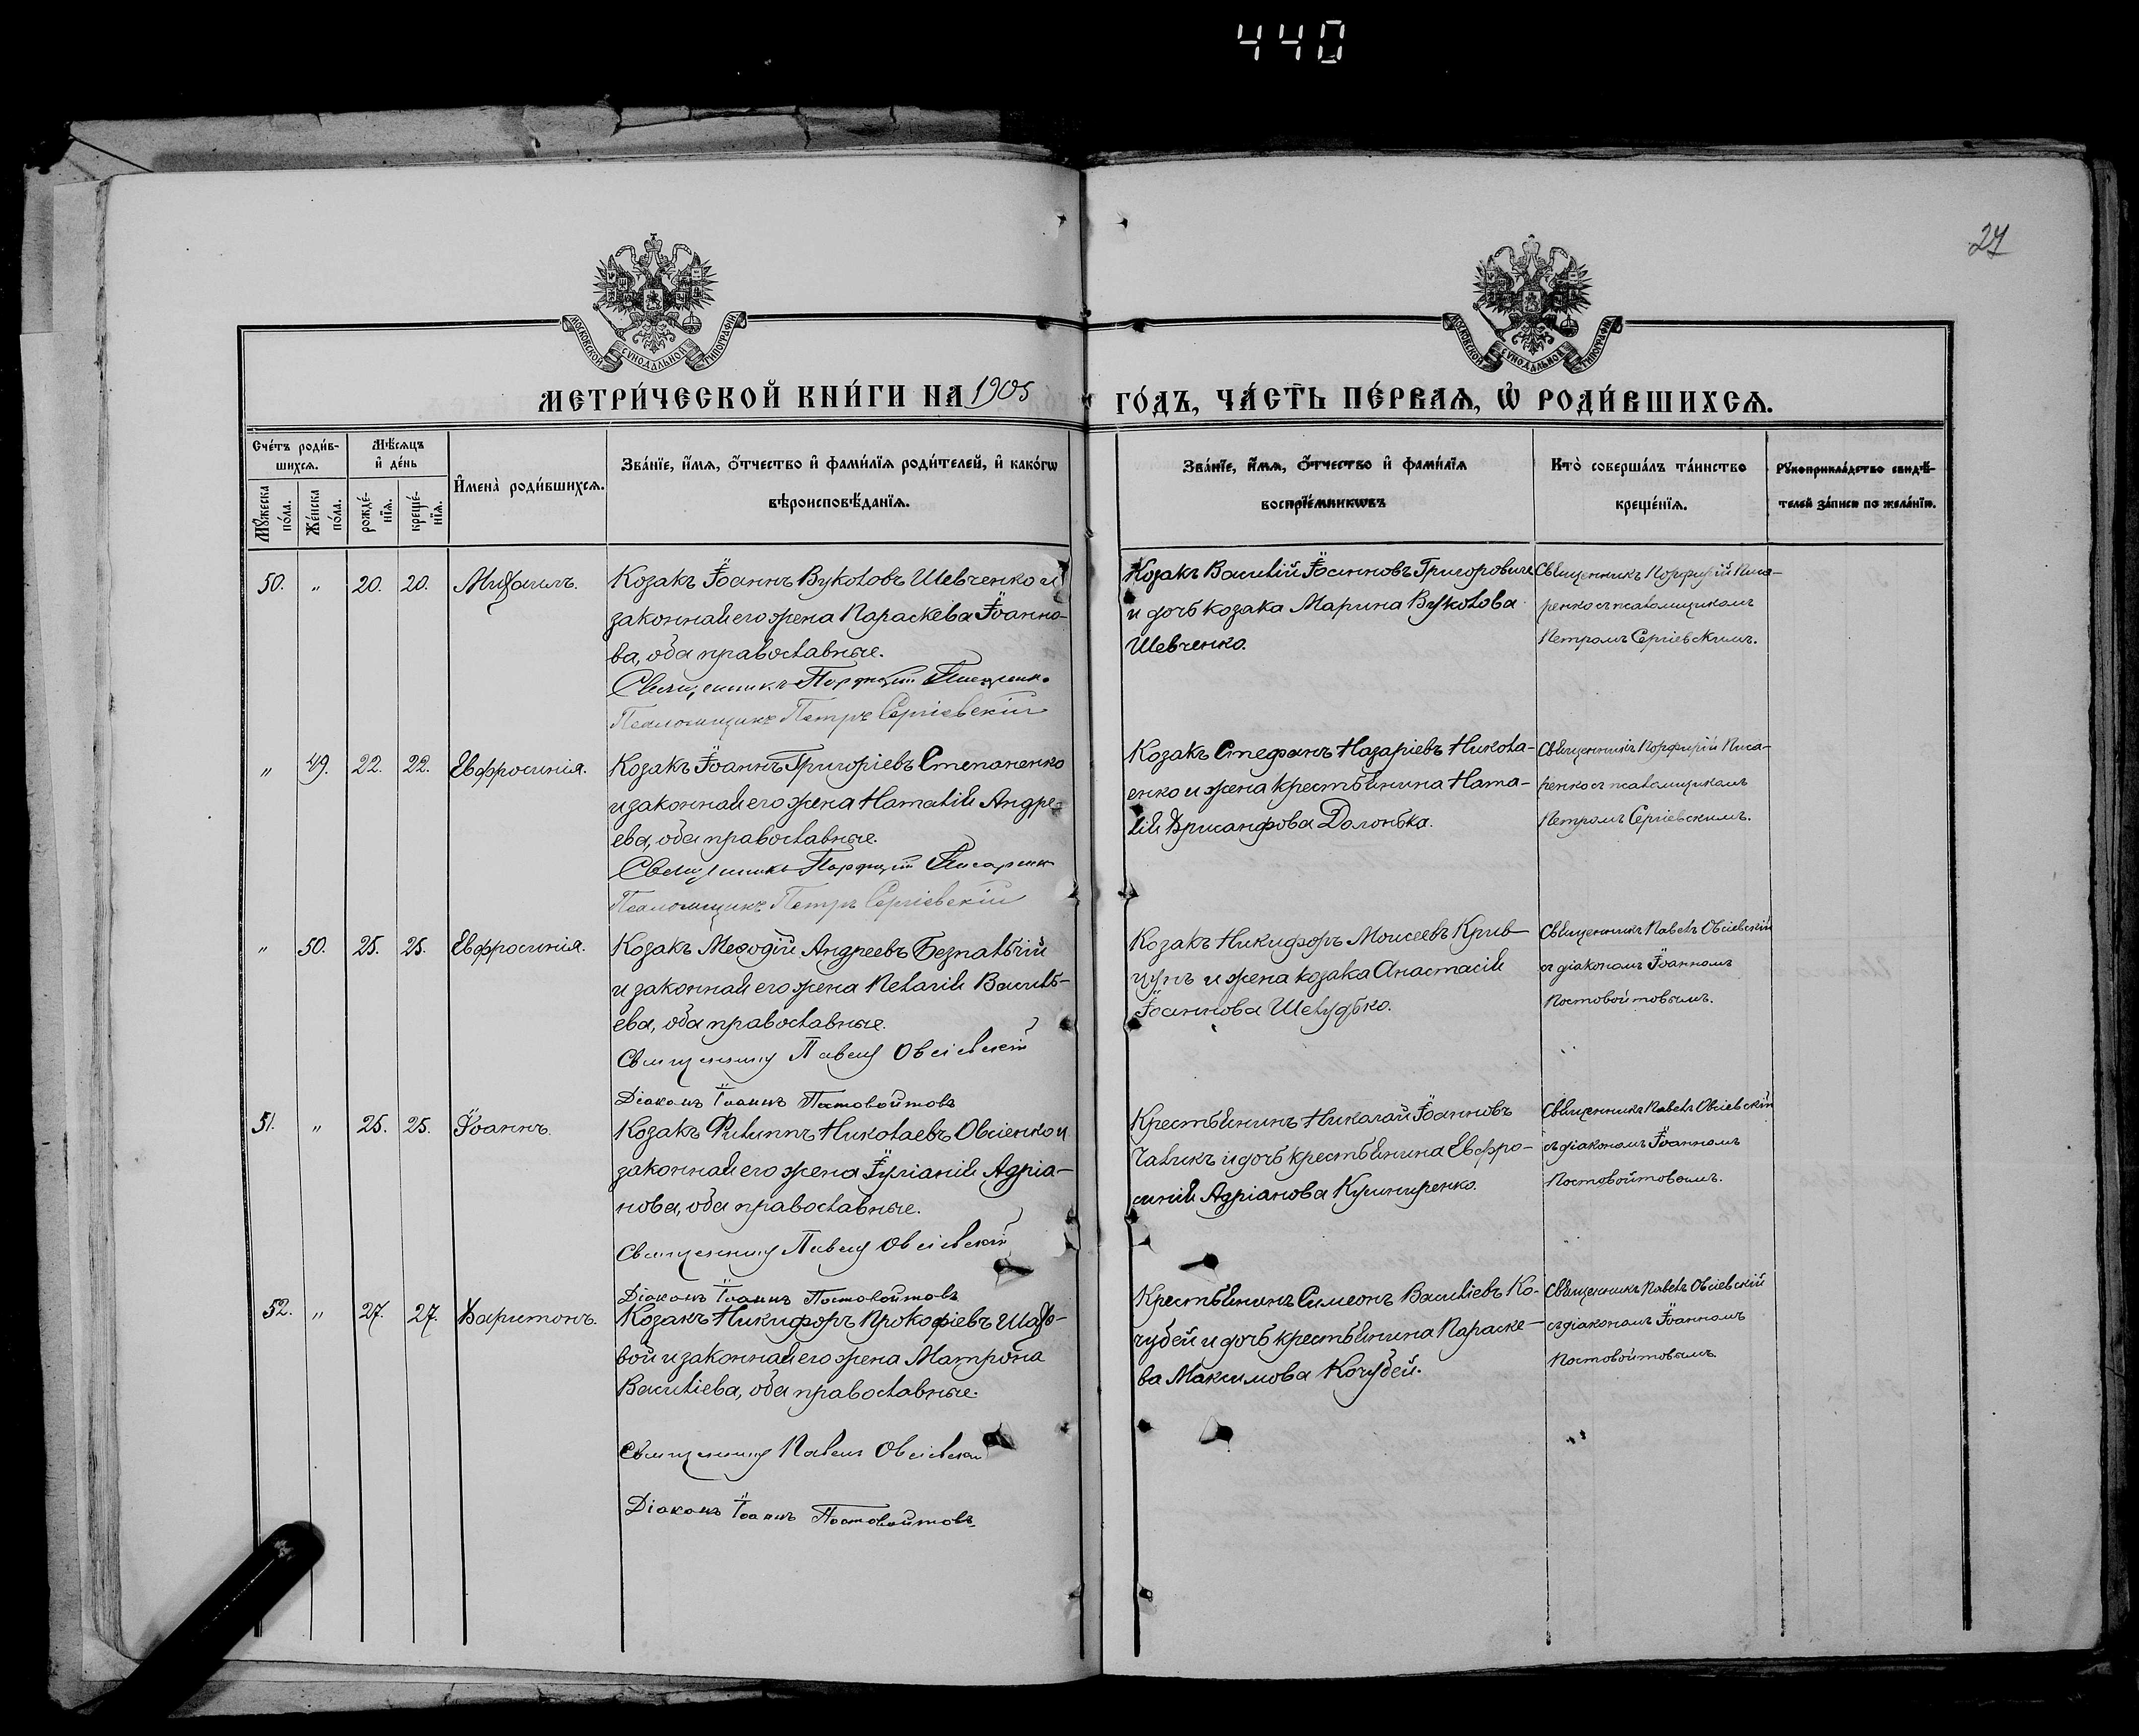 440
27
МОСКОВСКОЙ СУНОДАЛЬНОЙ ТИПОГРАФІИ
МОСКОВСКОЙ СУНОДАЛЬНОЙ ТИПОГРАФІИ
МЕТРИ́ЧЕСКОЙ КНИ́ГИ НА 1905 ГО́ДЪ, ЧА́СТЬ ПЕ́РВАѦ, Ѡ҆ РОДИ́ВШИХСѦ.
Счéтъ роди́в-
шихсѧ.
Мꙋ́жеска по́ла.
Же́нска по́ла.
Мѣ́сѧцъ
и҆ де́нь
рожде́-
нїѧ.
креще́-
нїѧ.
И҆мена̀ роди́вшихсѧ.
Зва́нїе, и҆́мѧ, о҆́тчество и҆ фами́лїѧ роди́телей, и҆ како́гѡ
вѣроисповѣ́данїѧ.
Зва́нїе, и҆́мѧ, о҆́тчество и҆ фами́лїѧ
воспрїе́мникѡвъ
Кто̀ соверша́лъ та́инство
креще́нїѧ.
Рꙋкоприкла́дство свидѣ́-
телей за́писи по жела́нїю.
50. " 20. 20. Михаилъ.
Козакъ Іоаннъ Вуколовъ Шевченко и
законная его жена Параскева Іоанно-
ва, оба православные.
Священникъ Порфирій Писаренко
Псаломщикъ Петръ Сергіевскій
Козакъ Василій Іоанновъ Григоровичъ
и дочь козака Марина Вуколова
Шевченко.
Священникъ Порфирій Писа-
ренко съ псаломщикомъ
Петромъ Сергіевскимъ.
" 49. 22. 22. Евфросинія.
Козакъ Іоаннъ Григоріевъ Степаненко
и законная его жена Наталія Андре-
ева, оба православные.
Священникъ Порфирій Писаренко
Псаломщикъ Петръ Сергіевскій
Козакъ Стефанъ Назаріевъ Никола-
енко и жена крестьянина Ната-
лія Хрисанфова Долонька.
Священникъ Порфирій Писа-
ренко съ псаломщикомъ
Петромъ Сергіевскимъ.
" 50. 25. 25. Евфросинія.
Козакъ Меѳодій Андреевъ Безпальчій
и законная его жена Пелагія Василь-
ева, оба православные.
Священникъ Павелъ Овсіевскій
Діаконъ Іоаннъ Постовойтовъ
Козакъ Никифоръ Моисеевъ Крив-
цунъ и жена козака Анастасія
Іоаннова Шелудько.
Священникъ Павелъ Овсіевскій
съ діакономъ Іоанномъ
Постовойтовымъ.
51. " 25. 25. Іоаннъ.
Козакъ Филиппъ Николаевъ Овсіенко и
законная его жена Іуліанія Адріа-
нова, оба православные.
Священникъ Павелъ Овсіевскій
Діаконъ Іоаннъ Постовойтовъ
Крестьянинъ Николай Іоанновъ
Чаликъ и дочь крестьянина Евфро-
синія Адріанова Кушниренко.
Священникъ Павелъ Овсіевскій
съ діакономъ Іоанномъ
Постовойтовымъ.
52. " 27. 27. Харитонъ.
Козакъ Никифоръ Прокофіевъ Шахо-
вой и законная его жена Матрона
Василіева, оба православные.
Священникъ Павелъ Овсіевскій
Діаконъ Іоаннъ Постовойтовъ.
Крестьянинъ Симеонъ Василіевъ Ко-
чубей и дочь крестьянина Параске-
ва Максимова Кочубей.
Священникъ Павелъ Овсіевскій
съ діакономъ Іоанномъ
Постовойтовымъ.